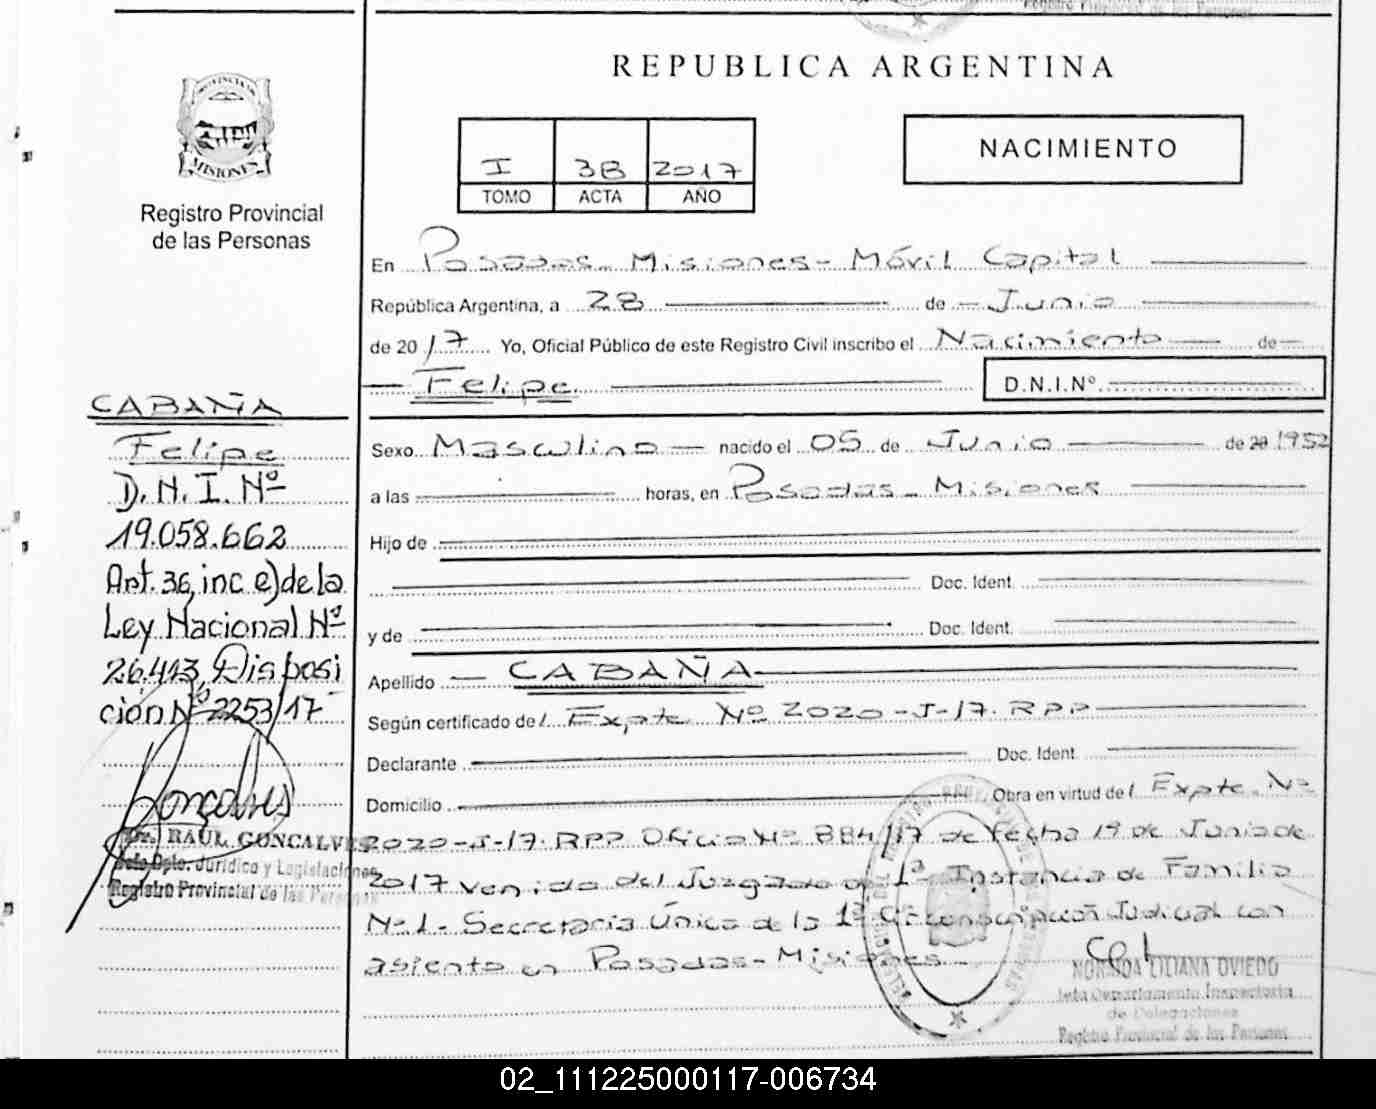 Registro Provincial de las Personas
REPUBLICA ARGENTINA
PROVINCIA DE
MISIONES
Registro Provincial
de las Personas
I 38 2017
TOMO ACTA AÑO
NACIMIENTO
En Posadas - Misiones - Móvil Capital
República Argentina, a 28 de Junio
de 20 17 Yo, Oficial Público de este Registro Civil inscribo el Nacimiento de
Felipe D.N.I.Nº
CABAÑA
Felipe
D.N.I. Nº
19.058.662
Art. 36, inc e) de la
Ley Nacional Nº
26.413, Disposi
ción Nº 2253/17
Goncalves
Dr. RAUL GONCALVES
Jefe Dpto. Jurídico y Legislaciones
Registro Provincial de las Personas
Sexo Masculino nacido el 05 de Junio de 20 1952
a las horas, en Posadas - Misiones
Hijo de
Doc. Ident.
y de Doc. Ident.
Apellido CABAÑA
Según certificado de/ Expte Nº 2020-J-17. RPP
Declarante Doc. Ident.
Domicilio Obra en virtud de/ Expte. Nº
2020-J-17. RPP Oficio Nº 884/17 de fecha 19 de Junio de
2017 venido del Juzgado de 1ª Instancia de Familia
Nº1. Secretaría Única de la 1ª Circunscripción Judicial con
asiento en Posadas - Misiones.-
NORMDA LILIANA OVIEDO
Jefa Departamento Inspectoria
de Delegaciones
Registro Provincial de las Personas
02_111225000117-006734